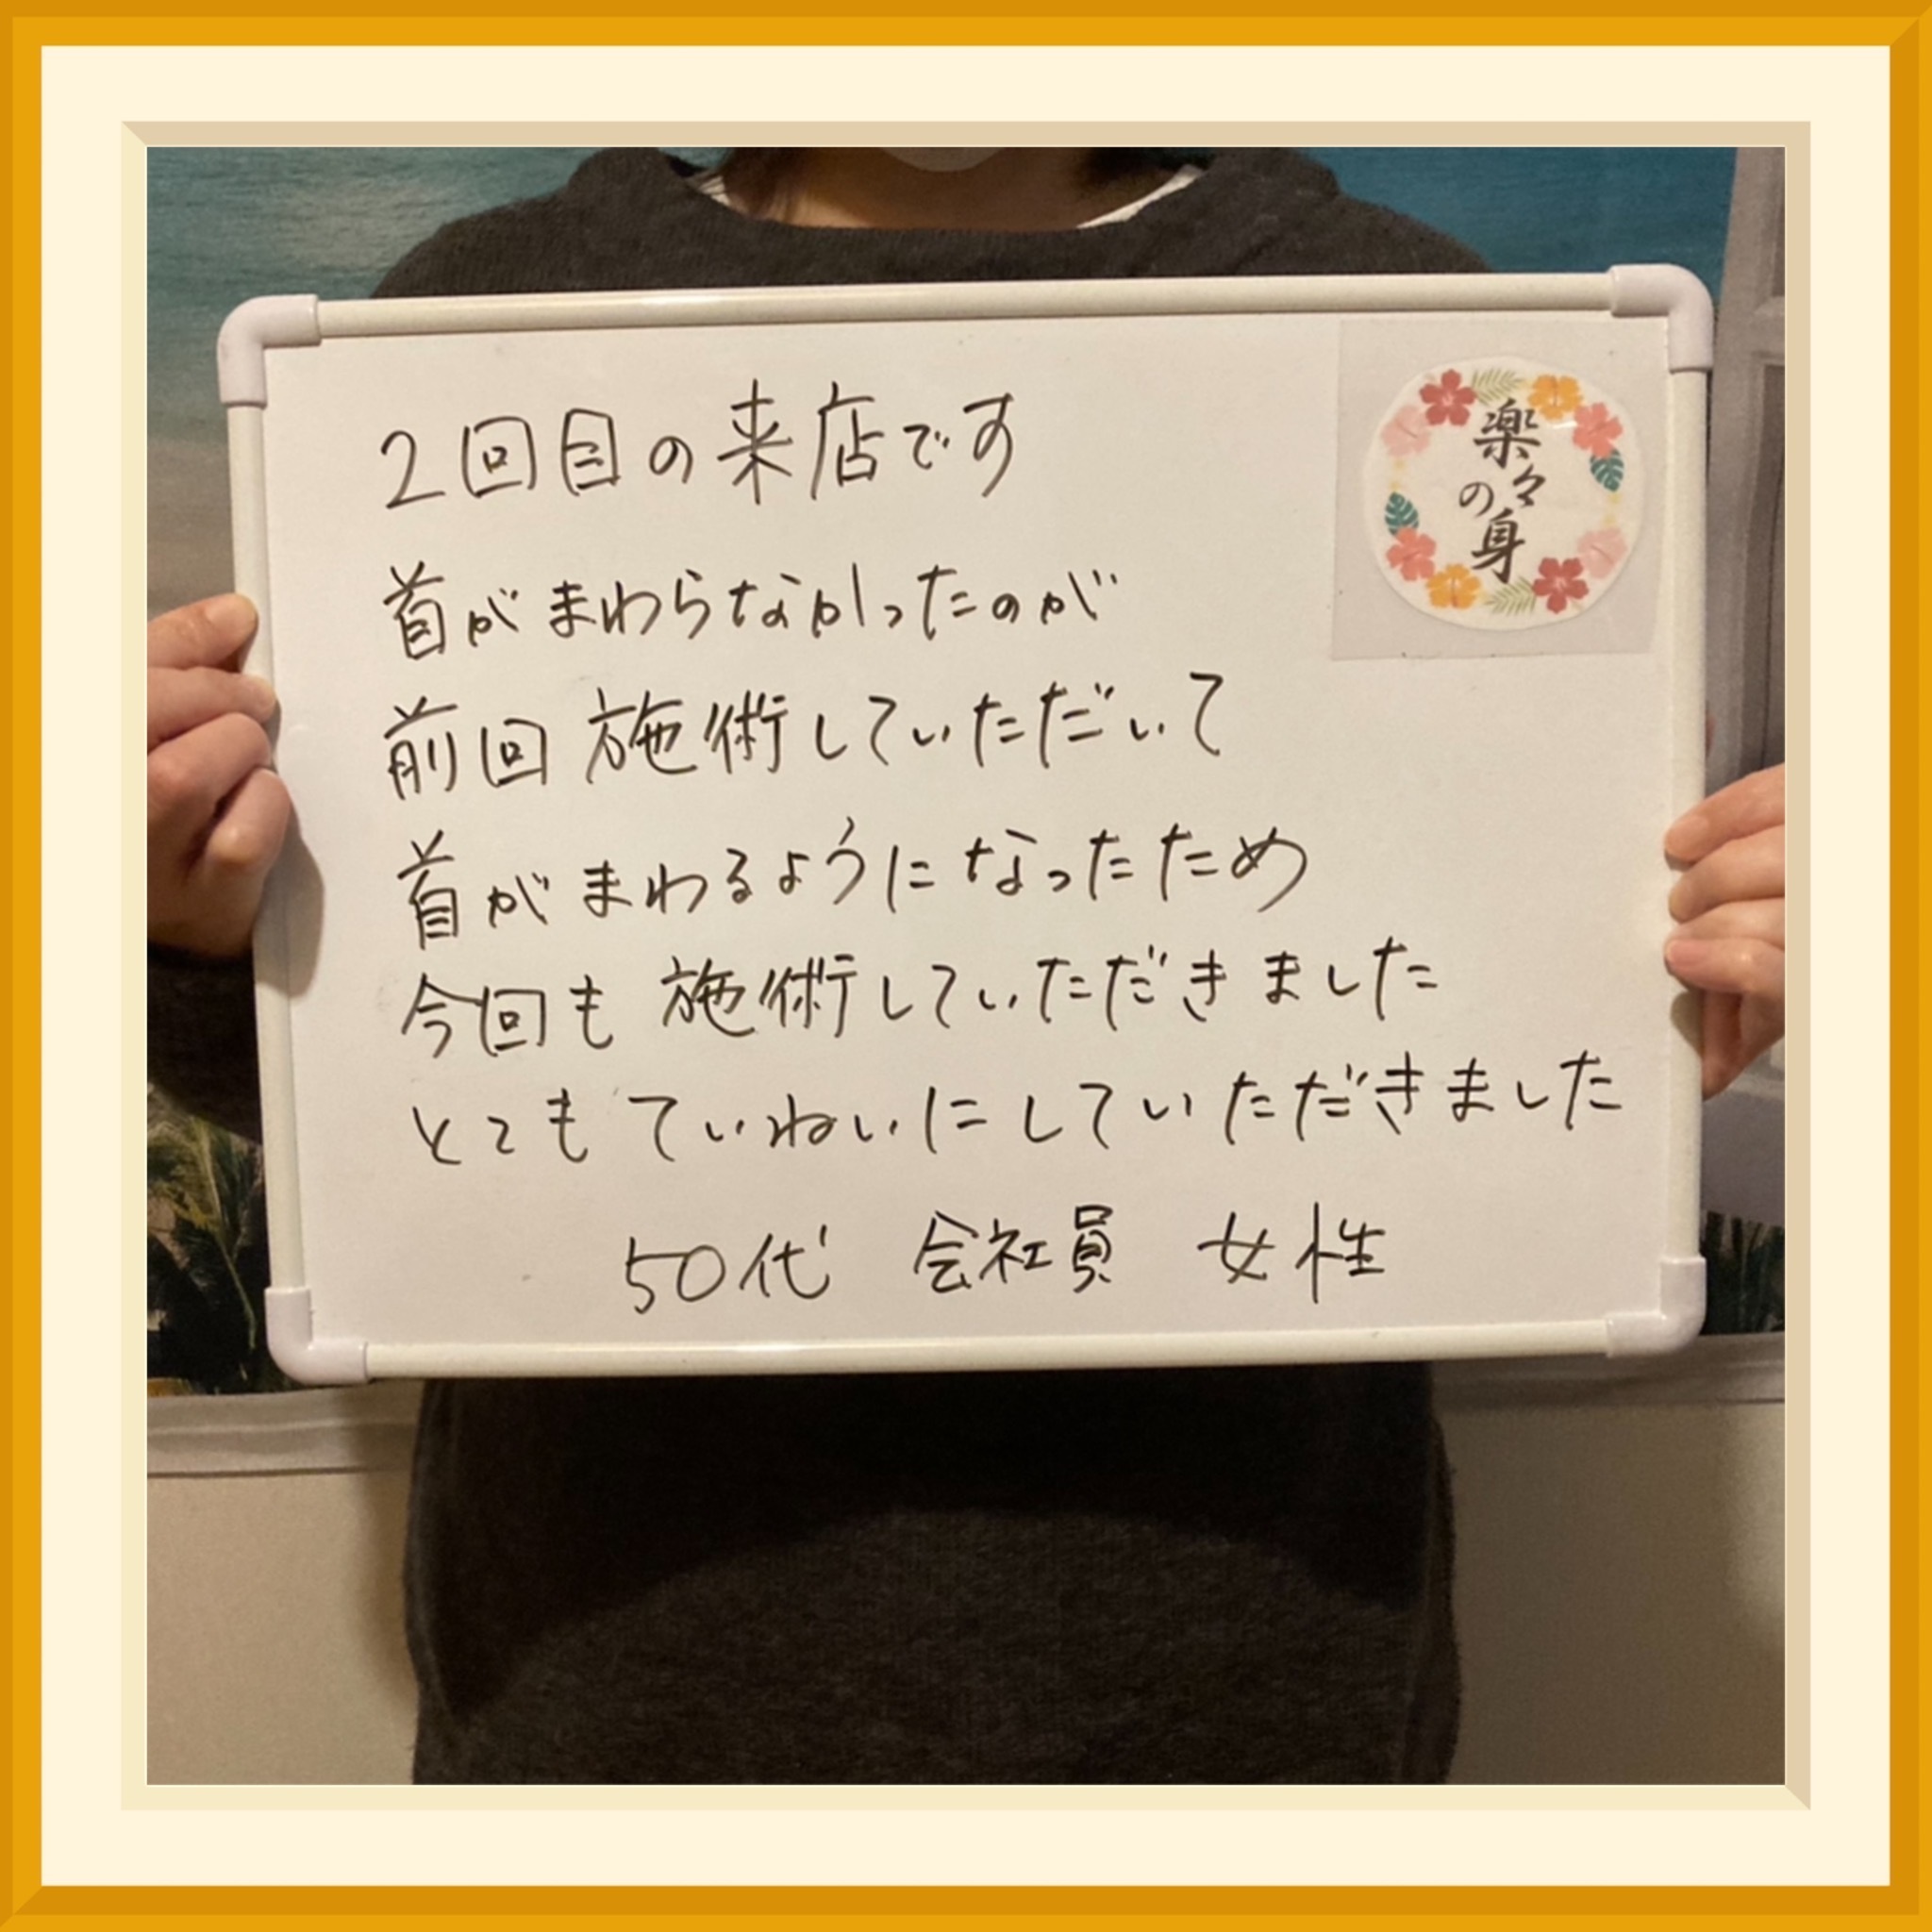 2回目の来店です
首がまわらなかったのが
前回施術していただいて
首がまわるようになったため
今回も施術していただきました
とてもていねいにしていただきました
50代 会社員 女性
楽々の身